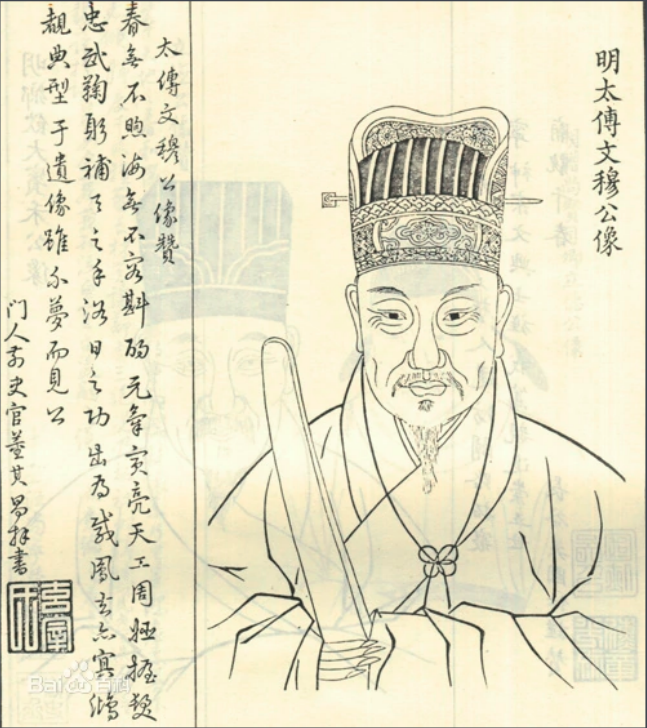 明太傅文穆公像
太傅文穆公像贊
春無不煦海無不容斟酌元氣寅亮天工周握契
忠武鞠躬補天之手浴日之功出為威鳳去亦冥鴻
覩典型于遺像雖不夢而見公
门人前史官董其昌拜書
Baidu百科